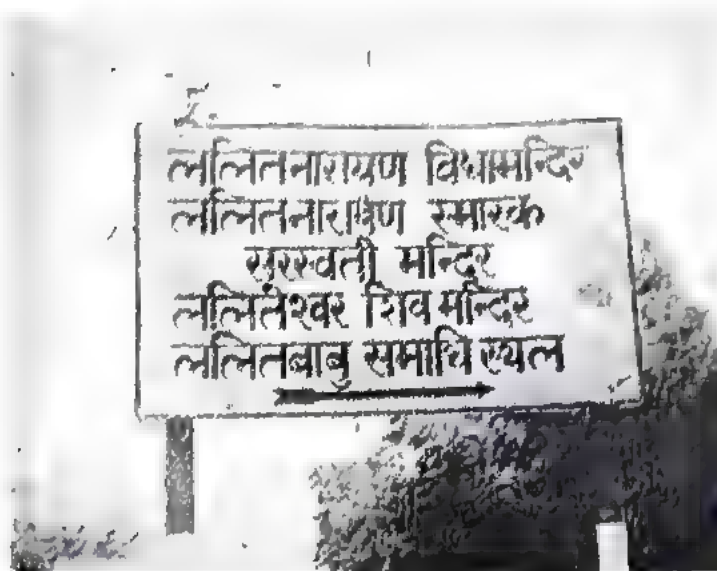 ललितनारायण विधामन्दिर
ललितनारायण स्मारक
सरस्वती मन्दिर
ललितेश्वर शिव मन्दिर
ललितबाबु समाधि स्थल